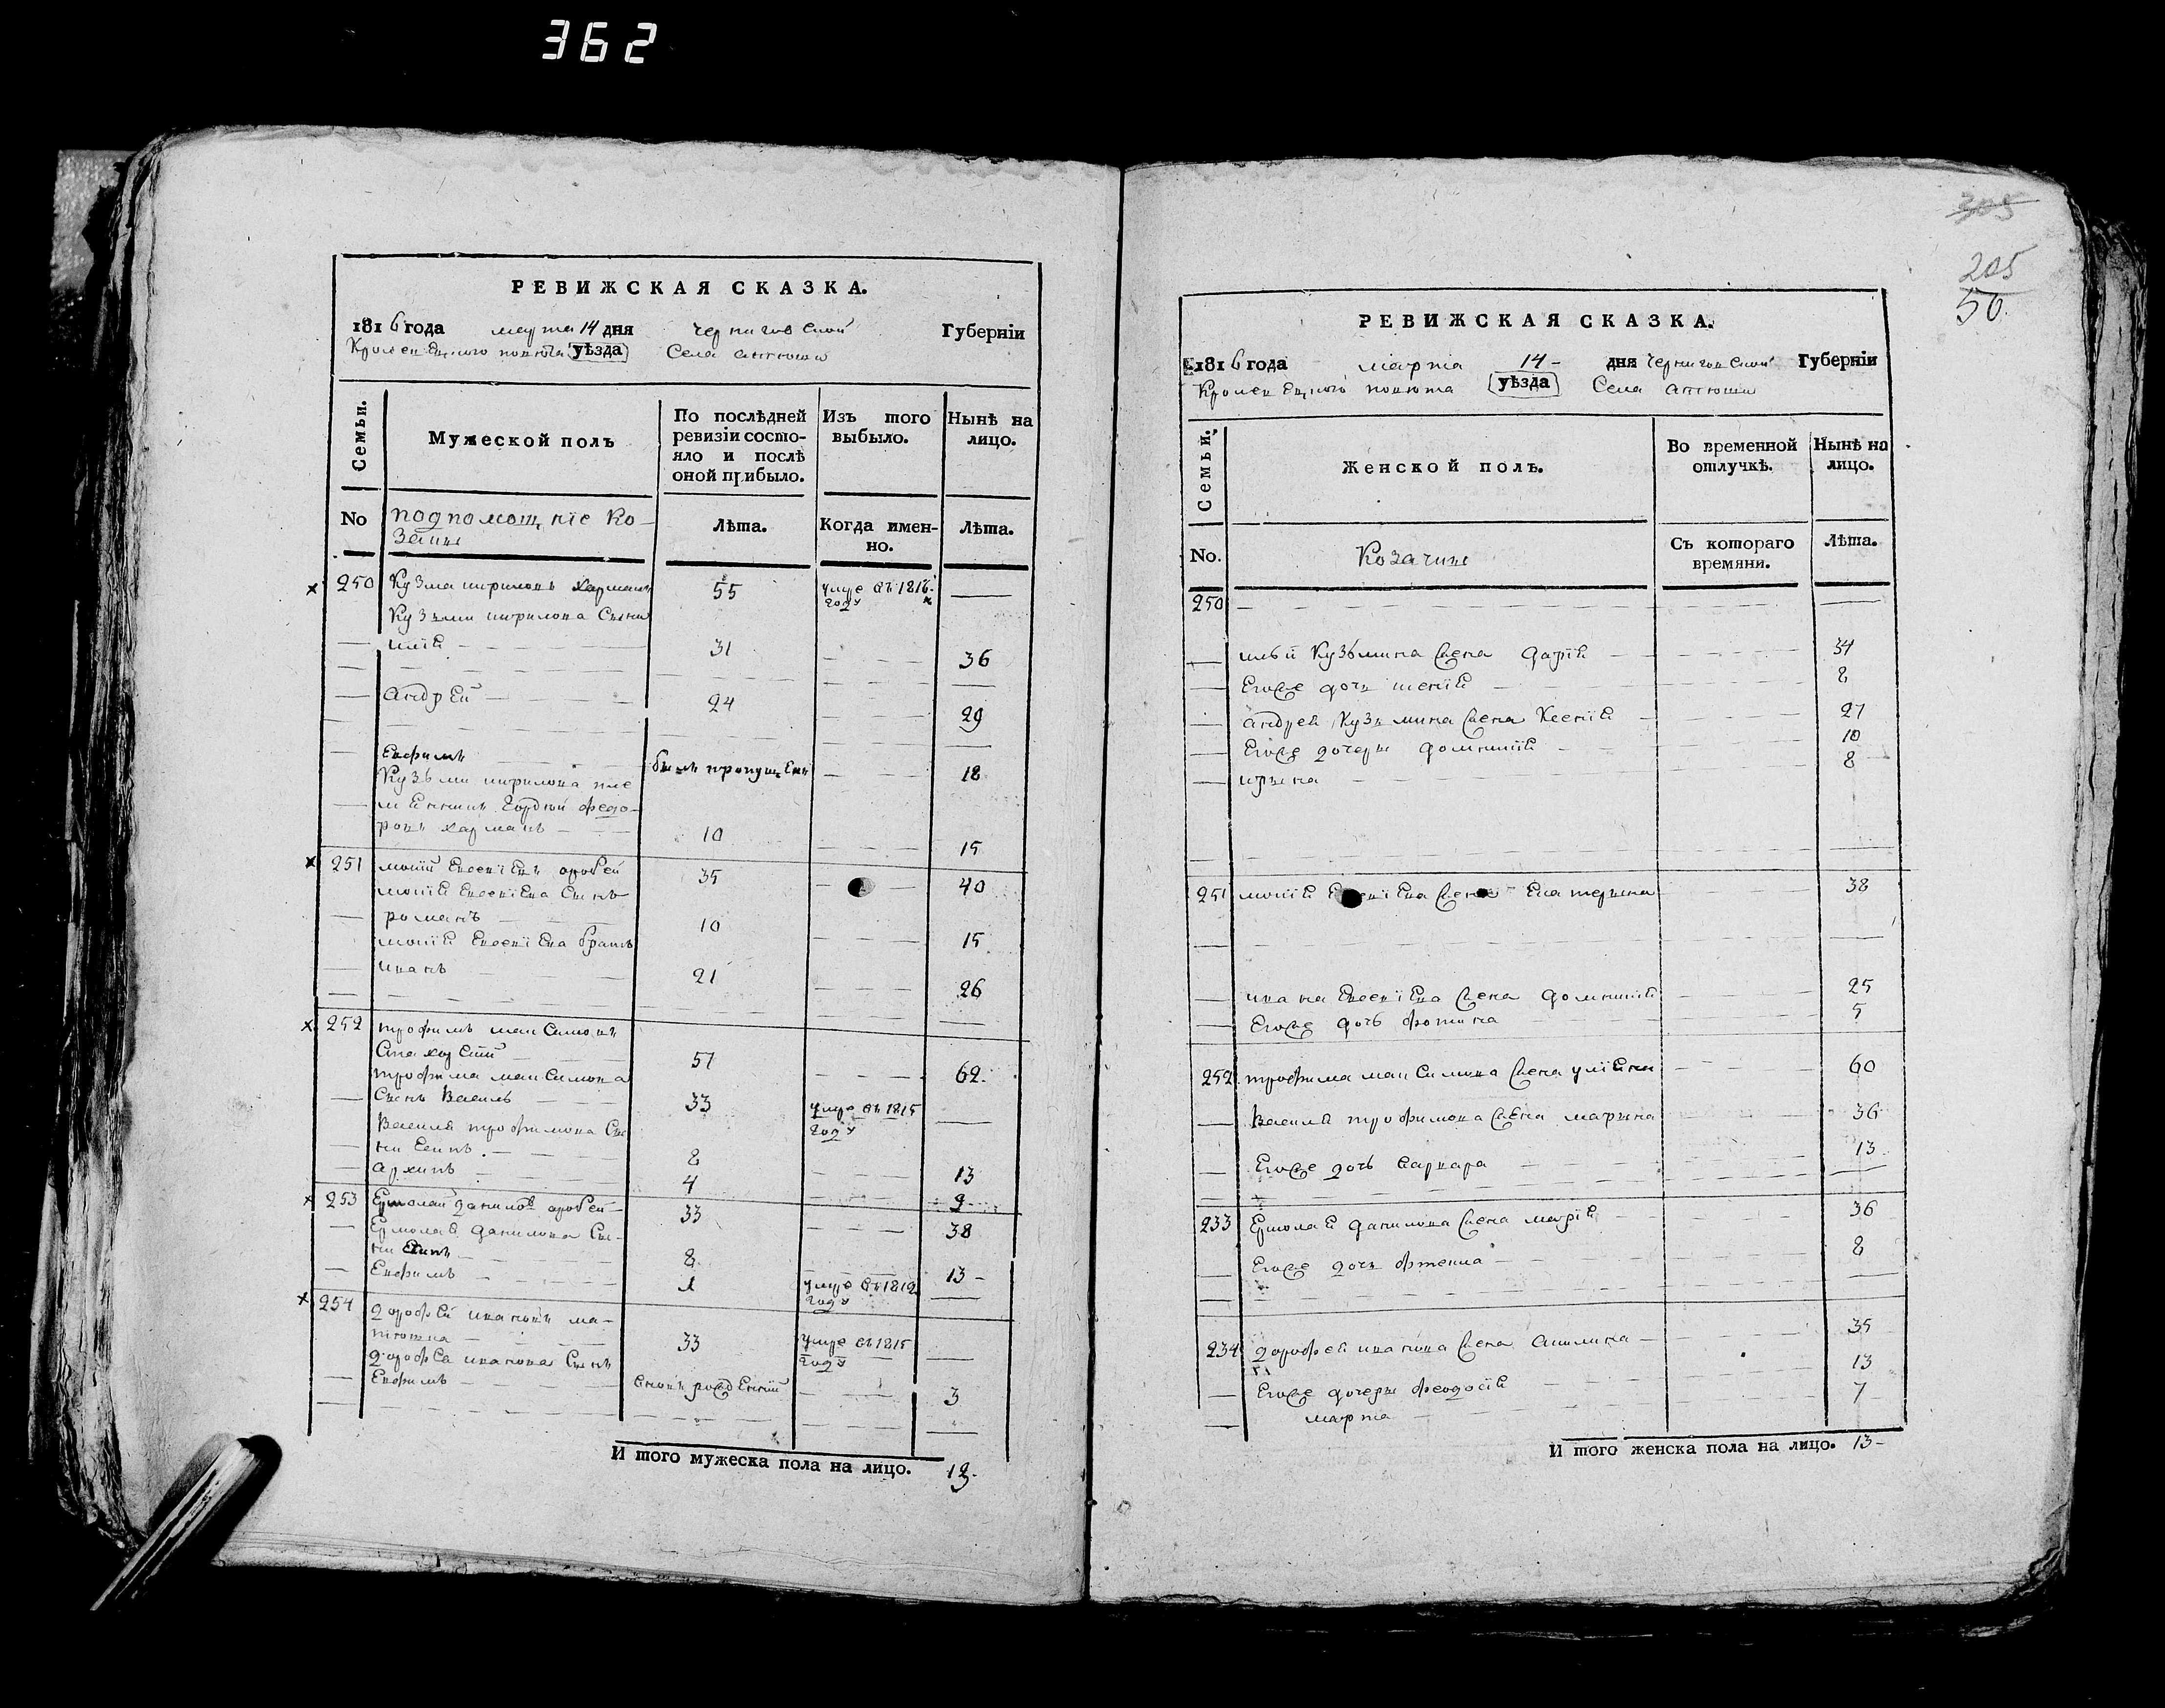 362
РЕВИЖСКАЯ СКАЗКА.
1816 года марта 14 дня Черниговской Губерніи
повѣта уѣзда Села
Семьи.
Мужеской полъ
По послѣдней ревизіи состо-
яло и послѣ
оной прибыло.
Изъ того
выбыло.
Нынѣ на
лицо.
No
подпомощніе Ко-
заки
Лѣта.
Когда имен-
но.
Лѣта.
250 Кузма кириловъ харманъ 55 умре въ 1816
году
Кузьми кирилова Сыни
илій 31 36
андрей 24 29
Евфимъ былъ пропущенъ 18
Кузьми кирилова пле
менникъ Гордѣй федо-
ровъ харманъ 10 15
251 35 40
Сынъ
романъ 10 15
братъ
иванъ 21 26
252 трофимъ максимовъ
57 62
трофима максимова
Сынъ Василь 33 умре въ 1815
году
Василя трофимова Сы
ни Есипъ 8 13
архипъ 4 9
253 Ермолай даниловъ 33 38
Ермолая данилова Сы-
ни Есипъ 8 13
Евфимъ 1 умре въ 1812
году
254 дорофей ивановъ ма-
33 умре въ 1815
году
дорофея иванова Сынъ
Евфимъ вновь рожденній 3
И того мужеска пола на лицо. 13
305
205
50
РЕВИЖСКАЯ СКАЗКА.
1816 года марта 14 дня Черниговской Губерніи
повѣта уѣзда Села
Семьи.
Женской полъ.
Во временной
отлучкѣ.
Нынѣ на
лицо.
No.
Козачки
Съ котораго
времяни.
Лѣта.
250
Кузьмина жена дарія 34
Егоже дочь 8
андрея Кузьмина жена Ксенія 27
Егоже дочери домникія 10
ирина 8
251 жена Екатерина 38
ивана жена домникія 25
Егоже дочь фотина 5
252 трофима максимова жена уліяна 60
Василя трофимова жена марина 36
Егоже дочь варвара 13
233 Ермолая данилова жена марія 36
Егоже дочь фтекла 8
234 дорофея иванова жена акилина 35
Егоже дочери феодосія 13
марта 7
И того женска пола на лицо. 13